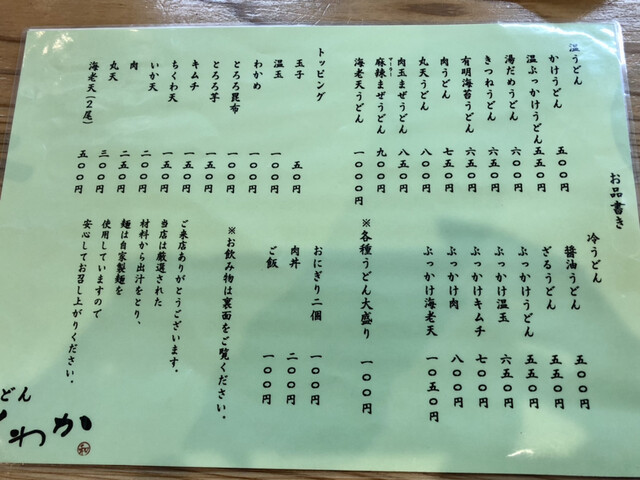 お品書き
温うどん
かけうどん 五〇〇円
温ぶっかけうどん 五五〇円
湯だめうどん 六〇〇円
きつねうどん 六五〇円
有明海苔うどん 六五〇円
肉うどん 七五〇円
丸天うどん 八〇〇円
肉玉まぜうどん 八五〇円
麻辣まぜうどん 九〇〇円
海老天うどん 一〇〇〇円
トッピング
玉子 五〇円
温玉 一〇〇円
わかめ 一〇〇円
とろろ昆布 一〇〇円
とろろ芋 一五〇円
キムチ 一五〇円
ちくわ天 一五〇円
いか天 二〇〇円
肉 二五〇円
丸天 三〇〇円
海老天(2尾) 五〇〇円
冷うどん
醤油うどん 五〇〇円
ざるうどん 五五〇円
ぶっかけうどん 五五〇円
ぶっかけ温玉 六五〇円
ぶっかけキムチ 七〇〇円
ぶっかけ肉 八〇〇円
ぶっかけ海老天 一〇五〇円
※各種うどん大盛り 一〇〇円
おにぎり二個 一〇〇円
肉丼 二〇〇円
ご飯 一〇〇円
※お飲み物は裏面をご覧ください。
ご来店ありがとうございます。
当店は厳選された
材料から出汁をとり、
麺は自家製麺を
使用していますので
安心してお召し上がりください。
どん
わか